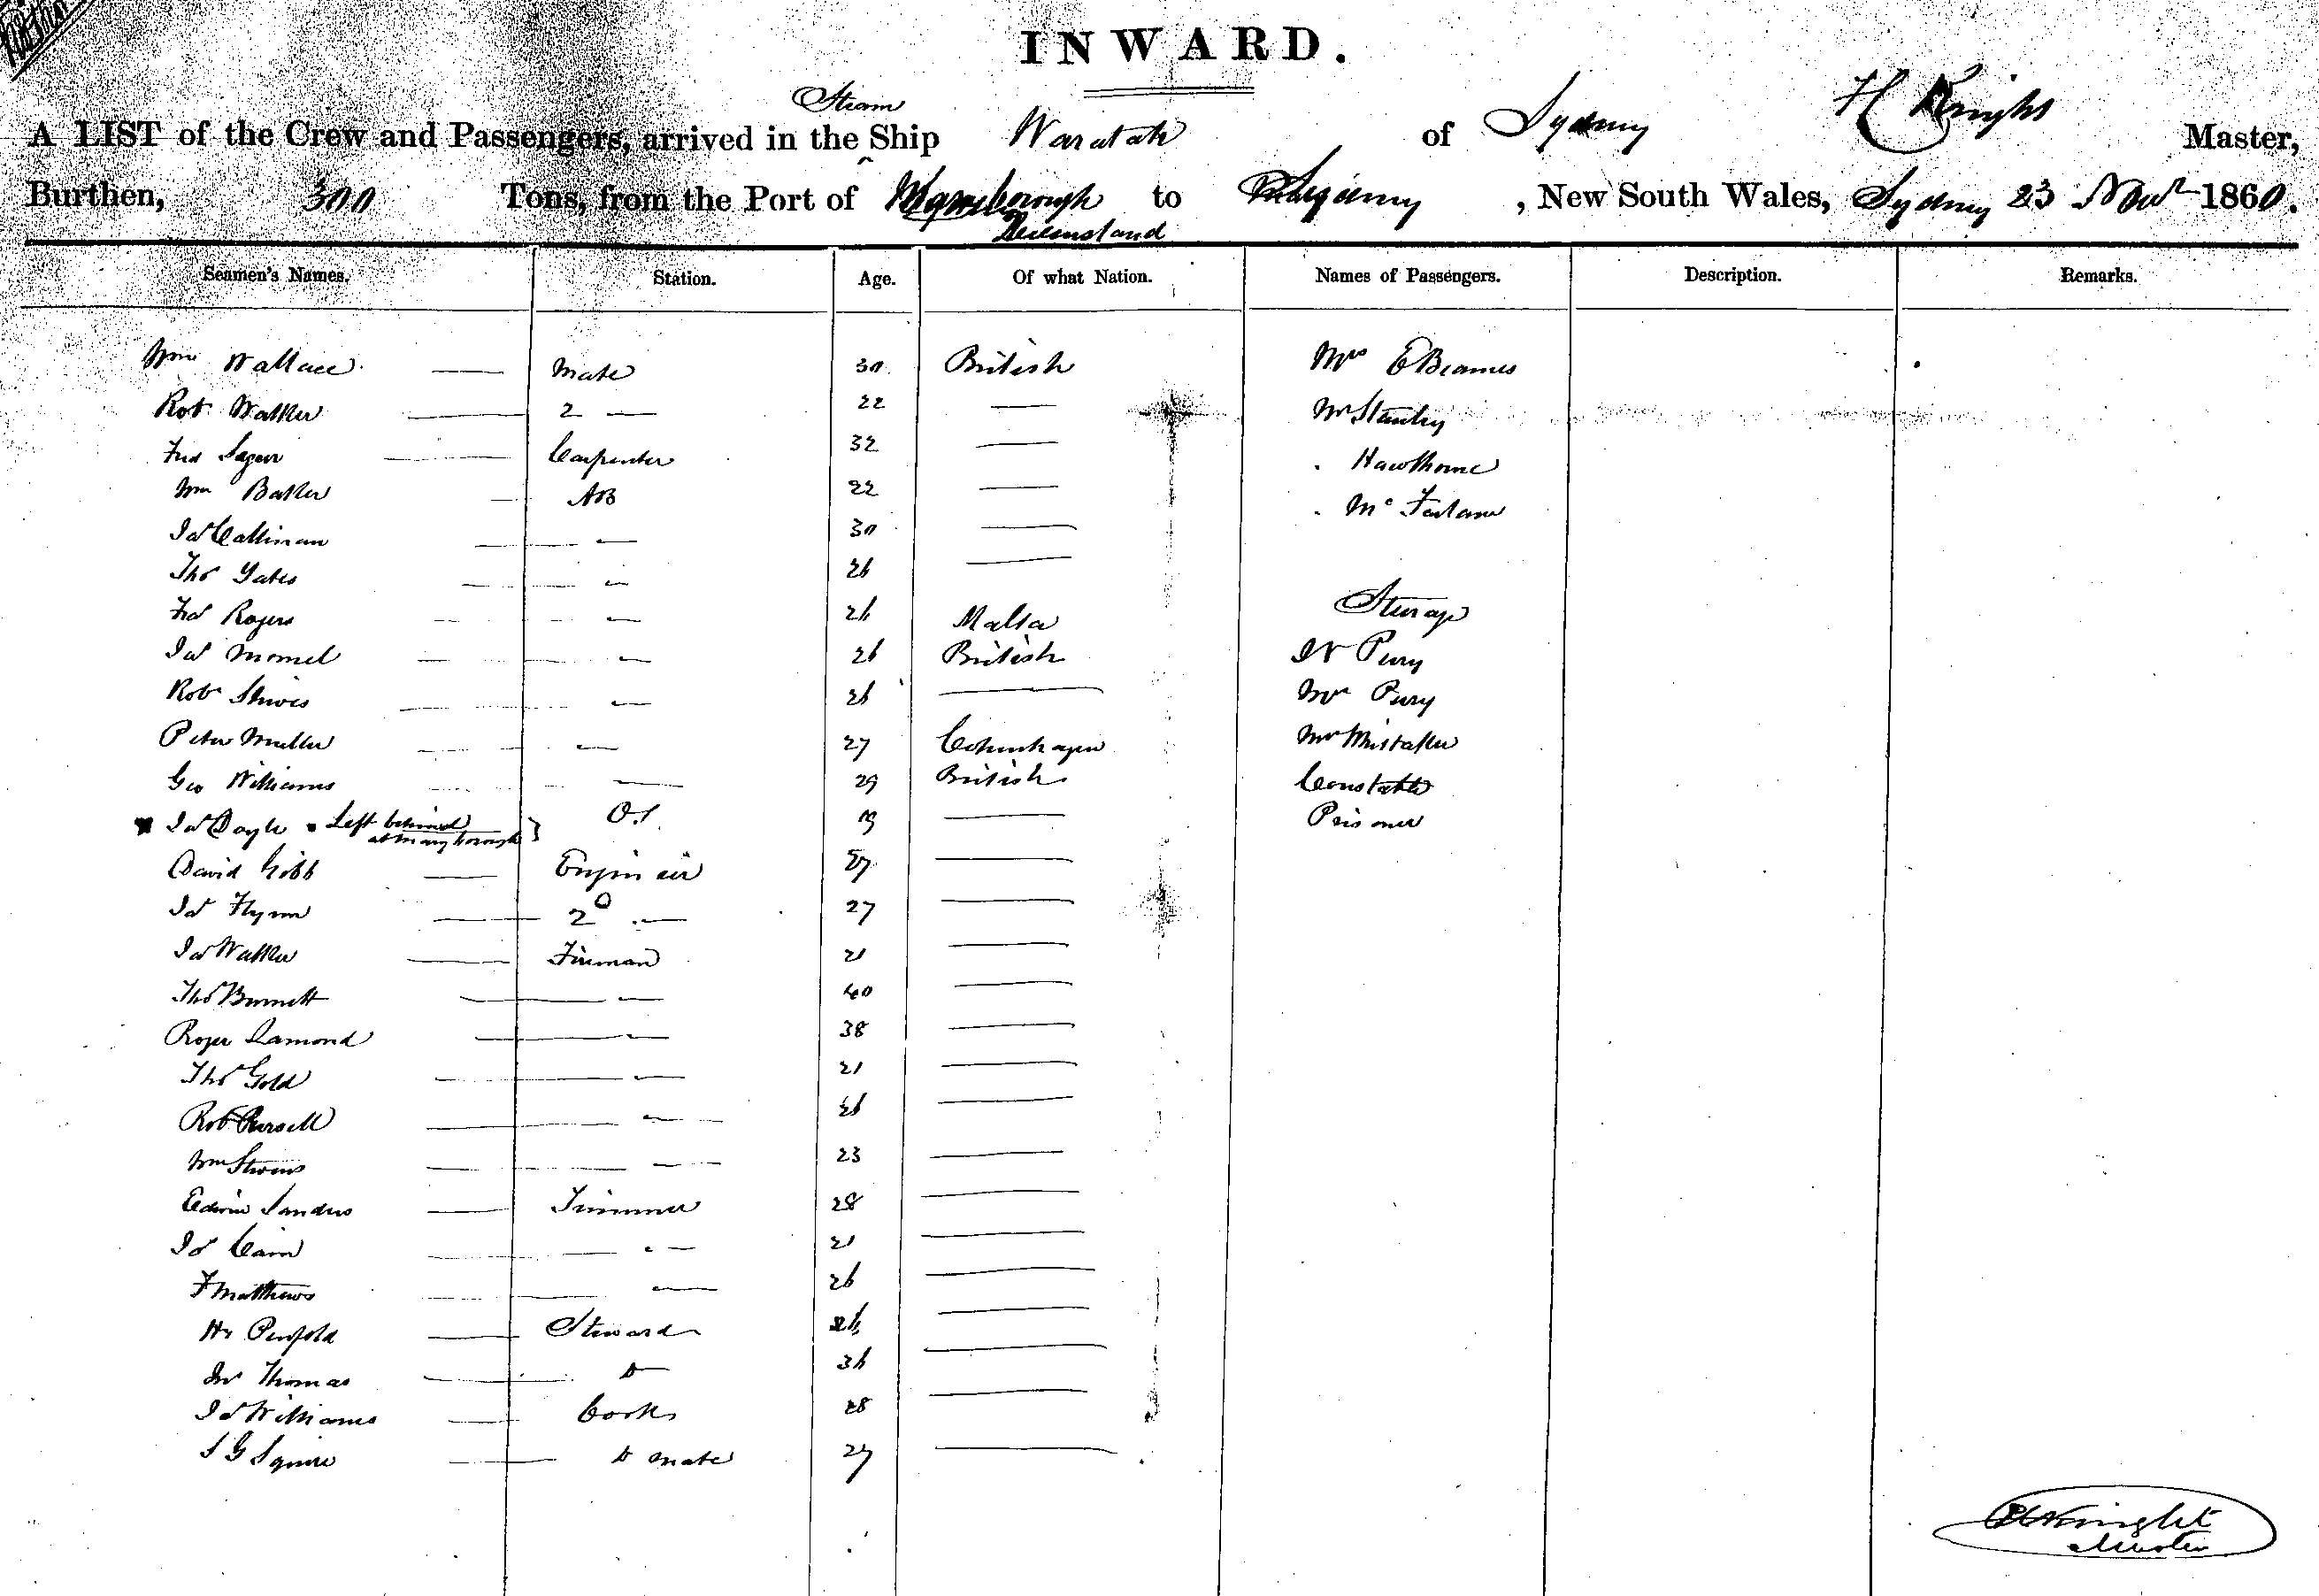 INWARD.
A LIST of the Crew and Passengers, arrived in the Steam Ship Waratah of Sydney H Knight Master,
Burthen, 300 Tons, from the Port of Maryborough Queensland to Sydney, New South Wales, Sydney 23 Novr 1860.
Seamen's Names. Station. Age. Of what Nation. Names of Passengers. Description. Remarks.
Wm Wallace — Mate 30 British Mrs E Beames
Rob Walker — 2 — 22 — Mr Stanley
Fred — Carpenter 32 — Hawthorne
Wm Baker — AB 22 — Mc Farlane
Jas Callinan — — 30 —
Thos Yates — — 26 —
Frd Rogers — — 26 Malta Steerage
Jas — — 26 British Jn Perry
Robt — — 26 — Mrs Perry
Peter Muller — — 27 Copenhagen Mr Whittaker
Geo Williams — 29 British Constable
x Jas Doyle x Left behind at Maryborough } O.S. 19 — Prisoner
David Gibb — Engineer 27 —
Jas Flynn — 2d — 27 —
Jas Walker — Fireman 21 —
Thos Burnett — — 40 —
Roger Lamond — — 38 —
Thos Gold — — 21 —
Robt Pursell — — 26 —
Wm Stevens — — 23 —
Edwin Sanders — Trimmer 28 —
Js Cain — — 21 —
F Matthews — — 26 —
Hy Penfold — Steward 26 —
Jno Thomas — Do 36 —
Jas Williams — Cook 28 —
S G Squire — Do mate 27 —
H Knight
Master